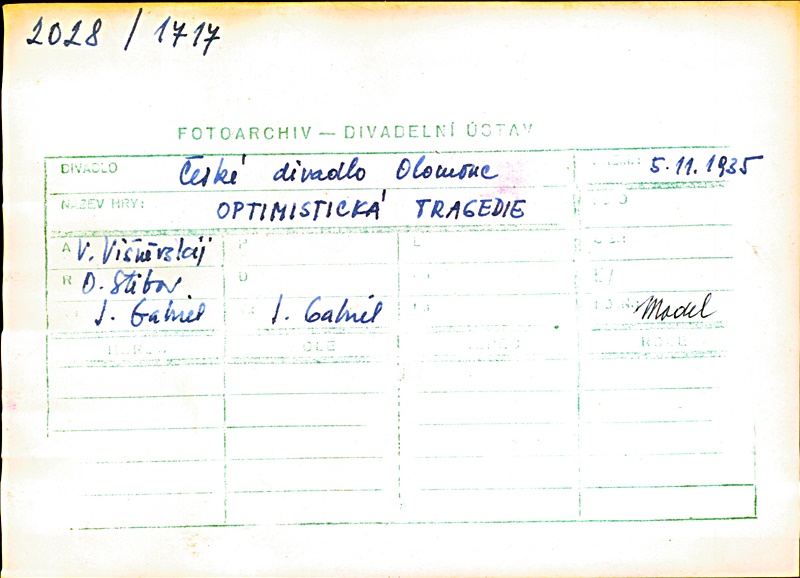 2028 / 1717
FOTOARCHIV — DIVADELNÍ ÚSTAV
DIVADLO České divadlo Olomouc 5.11.1935
NÁZEV HRY: OPTIMISTICKÁ TRAGEDIE
A V. Višněvskij
R O. Stibor
J. Gabriel J. Gabriel Model
ROLE